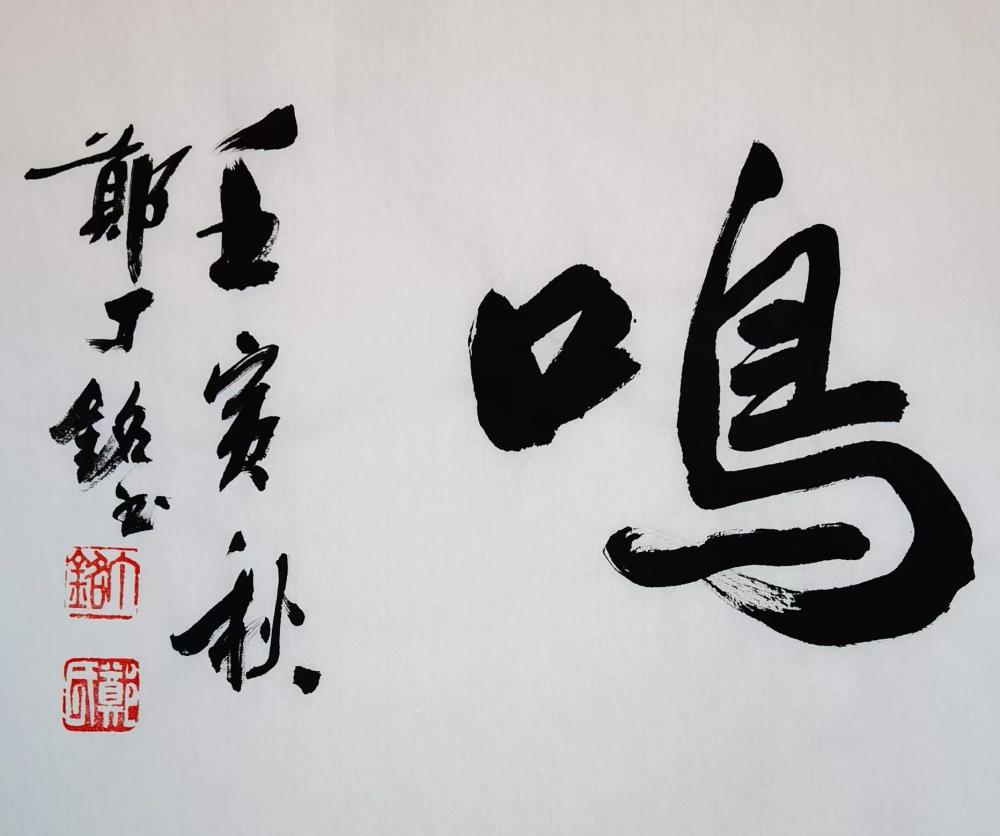 鳴
壬寅秋
鄭丁銘書
丁銘